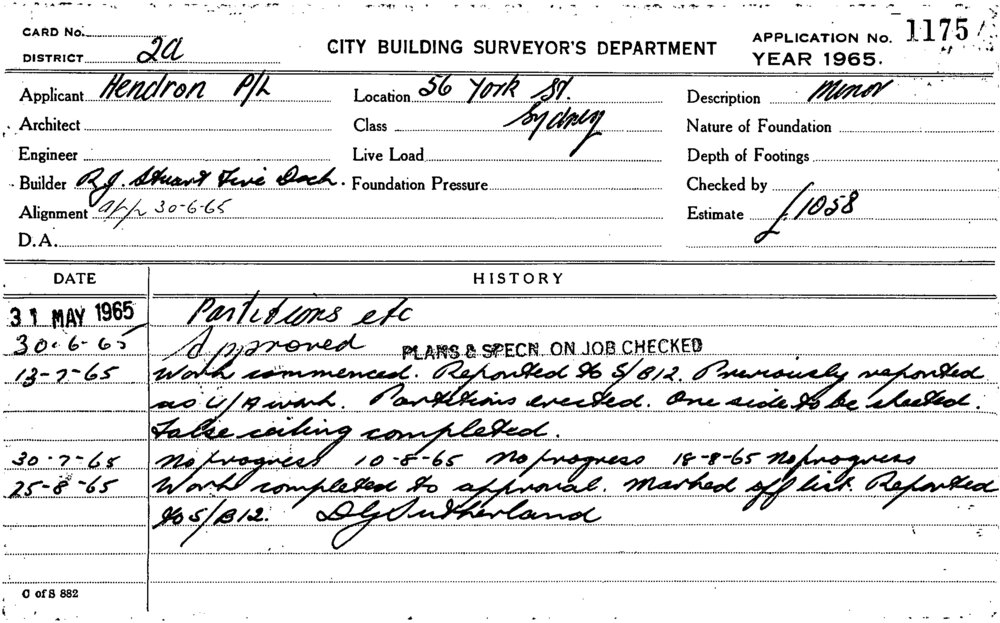 CARD No.
DISTRICT 2a
CITY BUILDING SURVEYOR'S DEPARTMENT
APPLICATION No. 1175/
YEAR 1965.
Applicant Hendron P/L
Location 56 York St.
Sydney
Description Minor
Architect
Class
Nature of Foundation
Engineer
Live Load
Depth of Footings
Builder R.J. Stuart Five Dock.
Foundation Pressure
Checked by
Alignment app 30-6-65
Estimate £1058
D.A.
DATE
HISTORY
31 MAY 1965 Partitions etc
30-6-65 Approved PLANS & SPECN. ON JOB CHECKED
13-7-65 Work commenced. Reported to S/B12. Previously reported
as U/A work. Partitions erected. One side to be sheeted.
False ceiling completed.
30-7-65 No progress 10-8-65 No progress 18-8-65 No progress
25-8-65 Work completed to approval. Marked off list. Reported
to S/B12. DG Sutherland
C of S 882